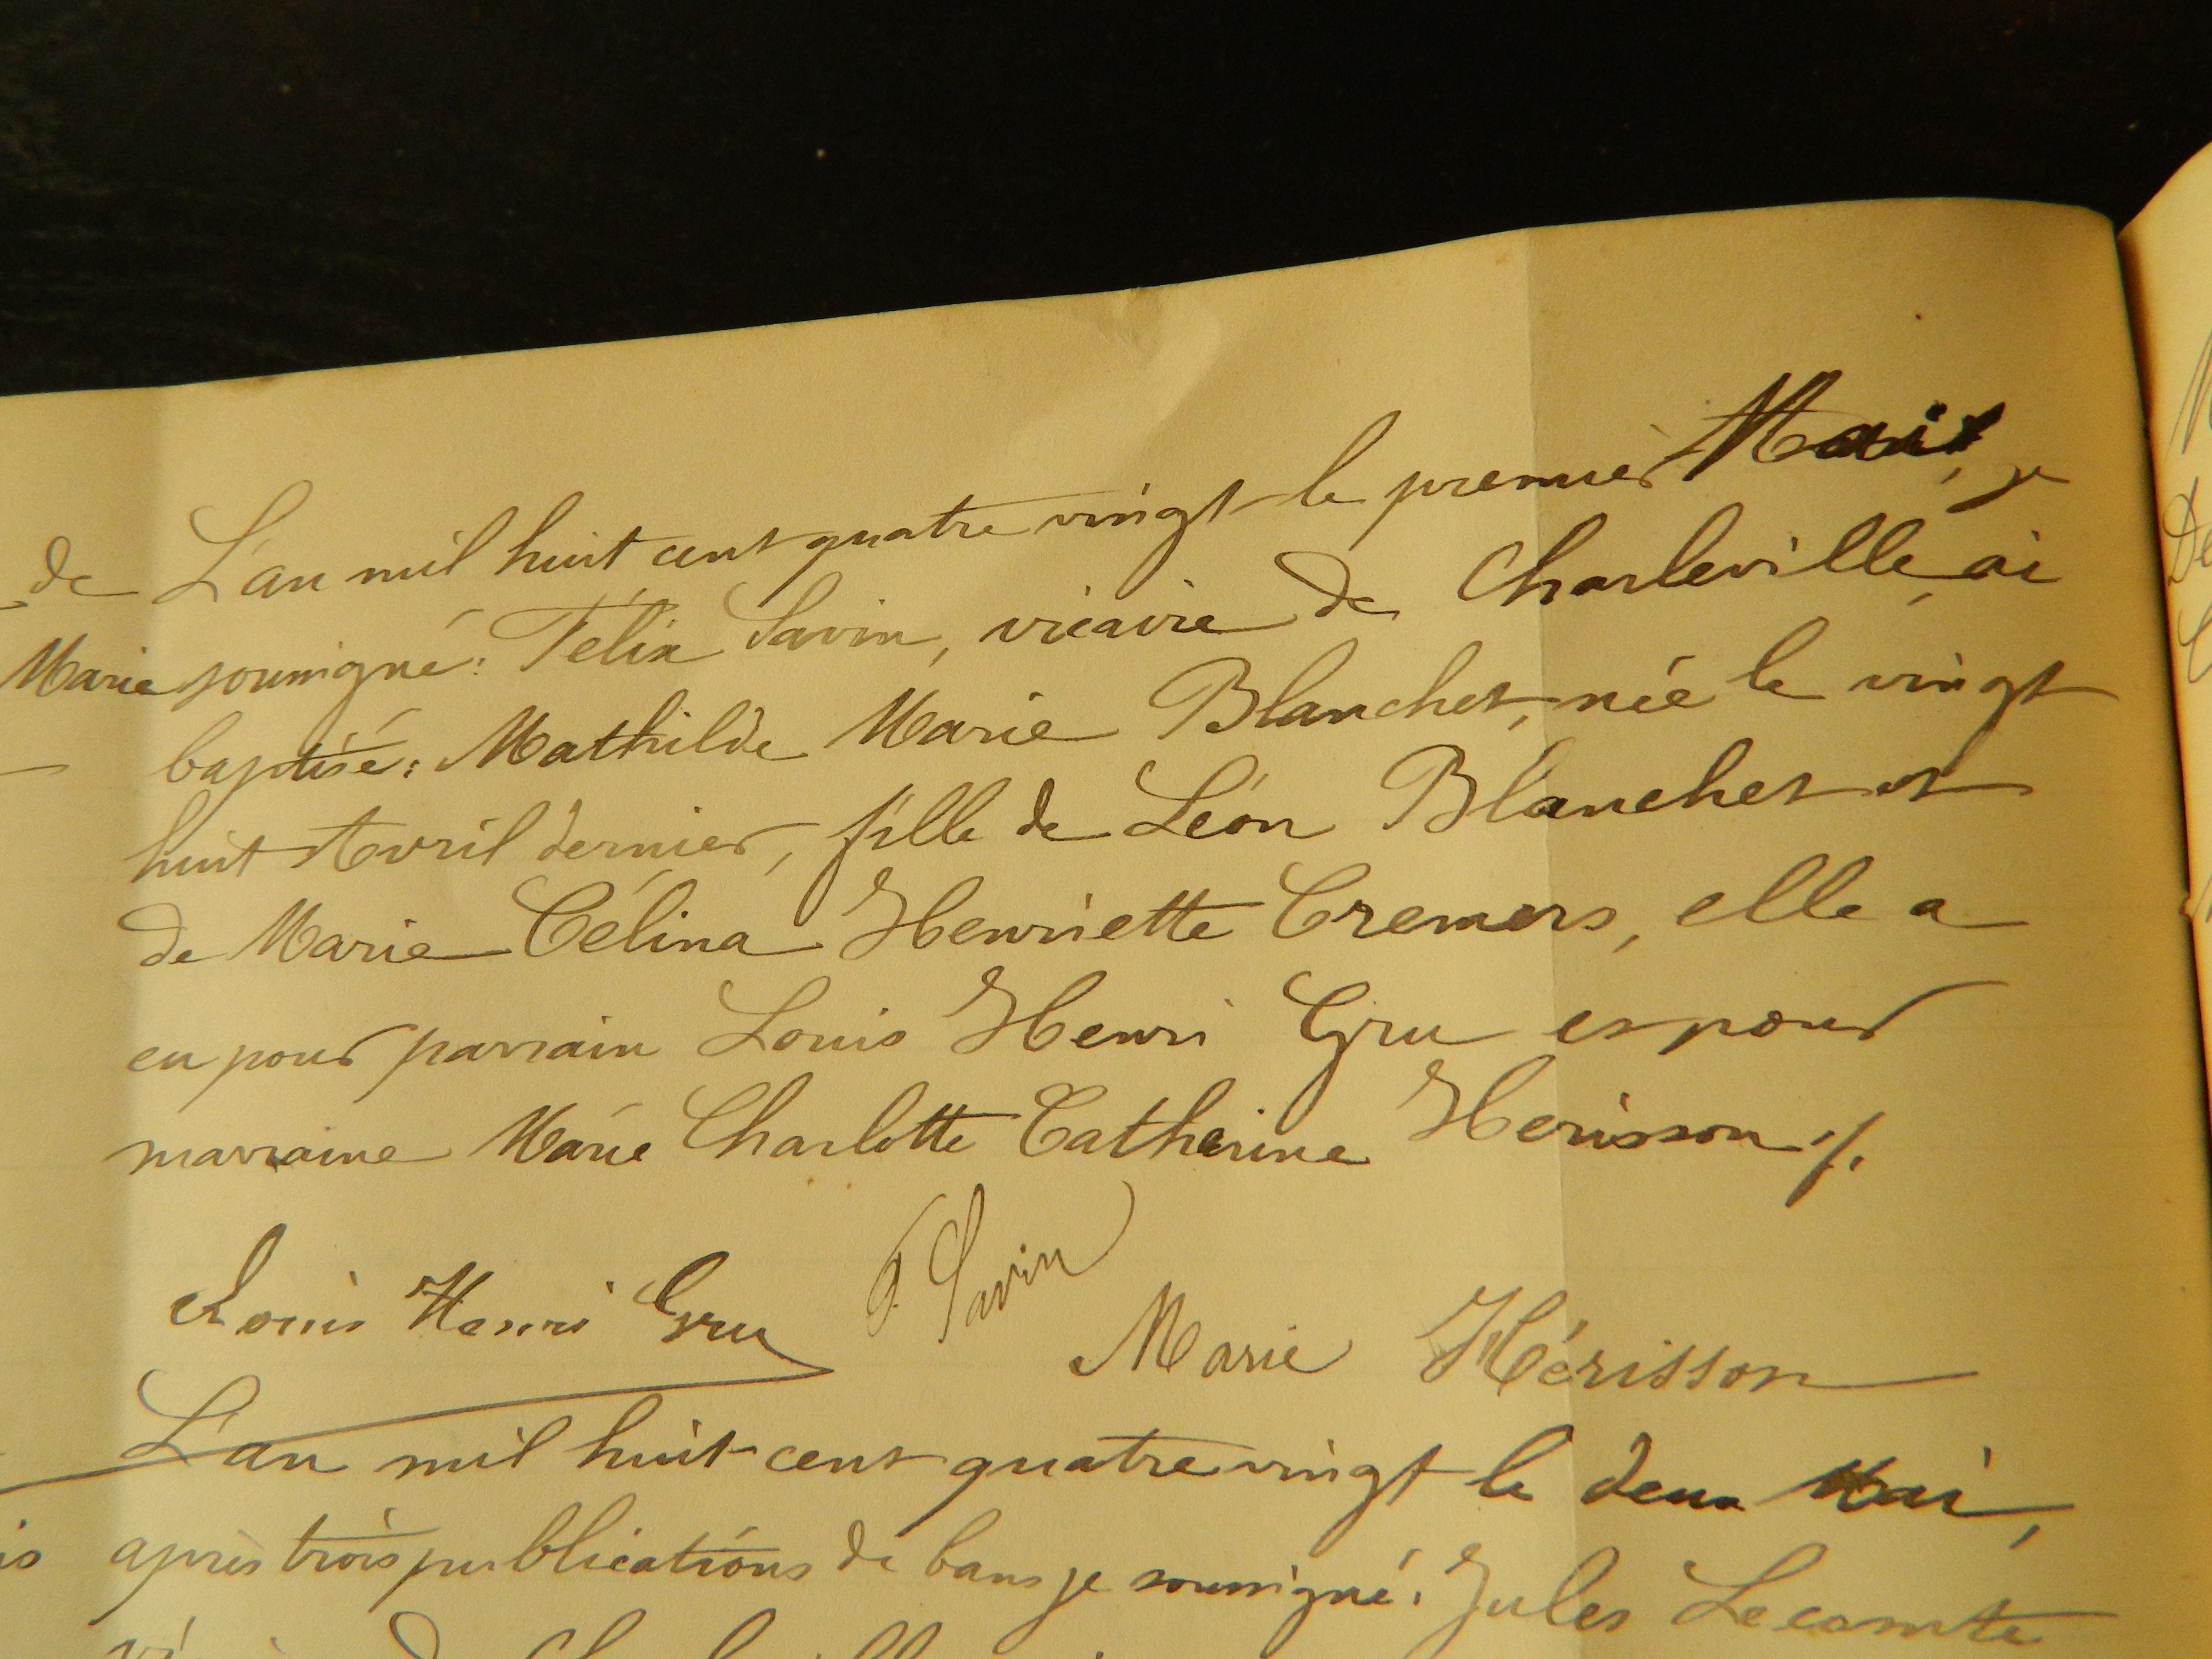 de L'an mil huit cent quatre vingt le premier Mai, je
Marie soussigné: Félix Savin, vicaire de Charleville, ai
baptisé: Mathilde Marie Blanchet, née le vingt
huit Avril dernier, fille de Léon Blanchet et
de Marie Célina Henriette Cremers, elle a
eu pour parrain Louis Henri Gru et pour
marraine Marie Charlotte Catherine Herisson ./.
Louis Henri Gru F. Savin
Marie Hérisson
L'an mil huit cent quatre vingt le deux Mai,
après trois publications de bans je soussigné: Jules Lecomte